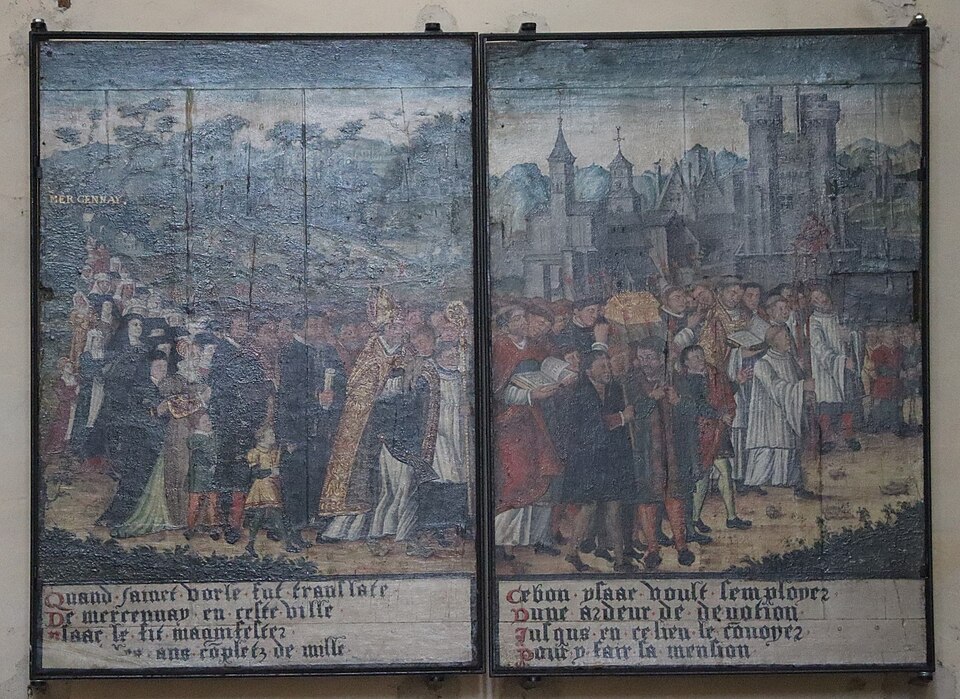 MERCENNAY.
Quand sainct vorle fut translate
De mercennay en ceste ville
ysaac le fit magnifester
ans cōpletz de mille
Cebon ysaac voult semployer
Dune ardeur de devotion
Jusqus en ce lieu le cōvoyer
Pour y faire sa mension